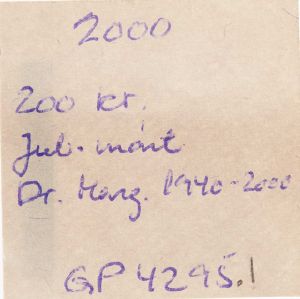 2000
200 kr.
Jub. mønt
Dr. Marg. 1940-2000
GP 4295.1